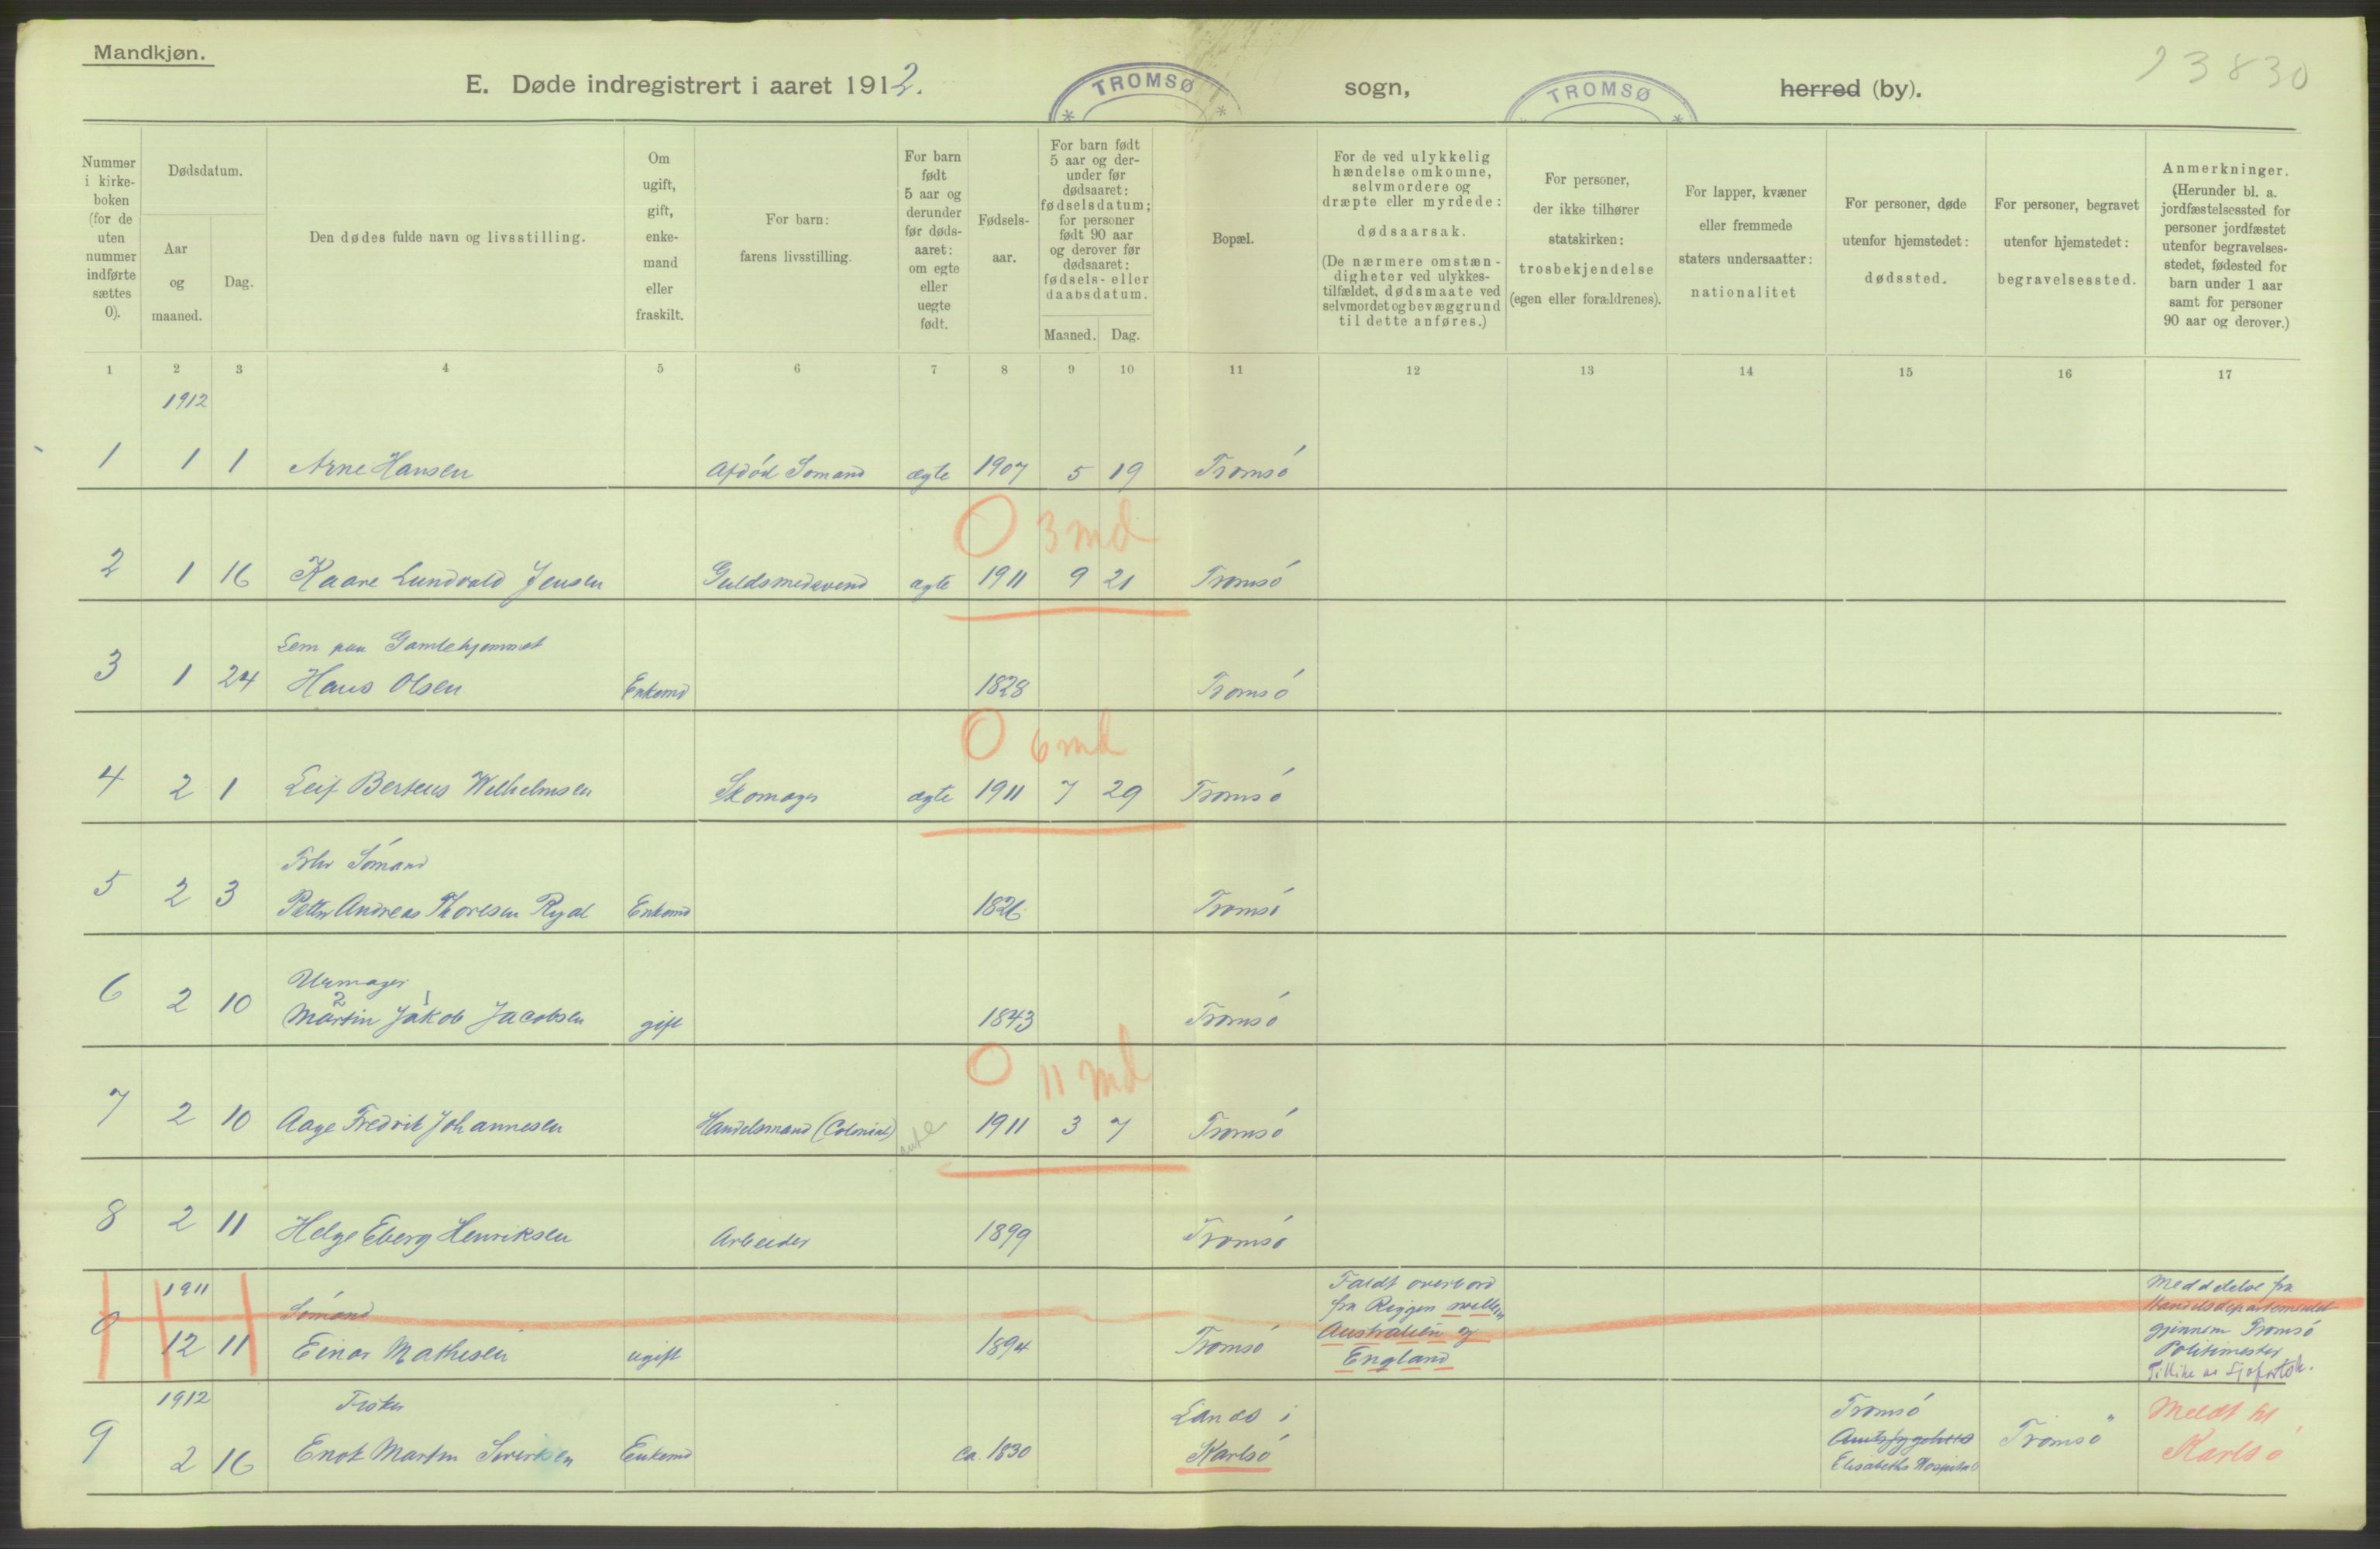 Mandkjøn.
E. Døde indregistrert i aaret 1912. TROMSØ sogn, TROMSØ herred (by).
13830
Nummer i kirke- boken (for de uten nummer indførte sættes 0).
Dødsdatum.
Aar og maaned.
Dag.
Den dødes fulde navn og livsstilling.
Om ugift, gift, enke- mand eller fraskilt.
For barn: farens livsstilling.
For barn født 5 aar og derunder før døds- aaret: om egte eller uegte født.
Fødsels- aar.
For barn født 5 aar og der- under før dødsaaret: fødselsdatum; for personer født 90 aar og derover før dødsaaret: fødsels- eller daabsdatum.
Maaned. Dag.
Bopæl.
For de ved ulykkelig hændelse omkomne, selvmordere og dræpte eller myrdede: dødsaarsak. (De nærmere omstæn- digheter ved ulykkes- tilfældet, dødsmaate ved selvmordet og bevæggrund til dette anføres.)
For personer, der ikke tilhører statskirken: trosbekjendelse (egen eller forældrenes).
For lapper, kvæner eller fremmede staters undersaatter: nationalitet
For personer, døde utenfor hjemstedet: dødssted.
For personer, begravet utenfor hjemstedet: begravelsessted.
Anmerkninger. (Herunder bl. a. jordfæstelsessted for personer jordfæstet utenfor begravelses- stedet, fødested for barn under 1 aar samt for personer 90 aar og derover.)
1 2 3 4 5 6 7 8 9 10 11 12 13 14 15 16 17
1912
1 1 1 Arne Hansen Afdød Sømand ægte 1907 5 19 Tromsø
0 3 md
2 1 16 Kaare Lundvald Jensen Guldsmedsvend ægte 1911 9 21 Tromsø
Lem paa Gamlehjemmet
3 1 24 Hans Olsen Enkemd 1828 Tromsø
0 6 md
4 2 1 Leif Berteus Wilhelmsen Skomager ægte 1911 7 29 Tromsø
Fhv Sømand
5 2 3 Petter Andreas Thoresen Ryal Enkemd 1826 Tromsø
Urmager
2 1
6 2 10 Martin Jakob Jacobsen gift 1843 Tromsø
0 11 md
7 2 10 Aage Fredrik Johannesen Handelsmand (Colonial) 1911 3 7 Tromsø
8 2 11 Helge Eberg Henriksen Arbeider 1899 Tromsø
1911 Sømand
0 12 11 Einar Mathisen ugift 1894 Tromsø
Faldt overbord
fra Riggen mellem
Australien og
England
Meddelelse fra
Handelsdepartementet
gjennem Tromsø
Politimester
Tillike av Sjøfartsk.
1912 Fisker
9 2 16 Enok Martin Sivertsen Enkemd ca. 1830
Lanes i
Karlsø
Tromsø
Amtssygehus
Elisabeths Hospital
Tromsø
Meldt til
Karlsø